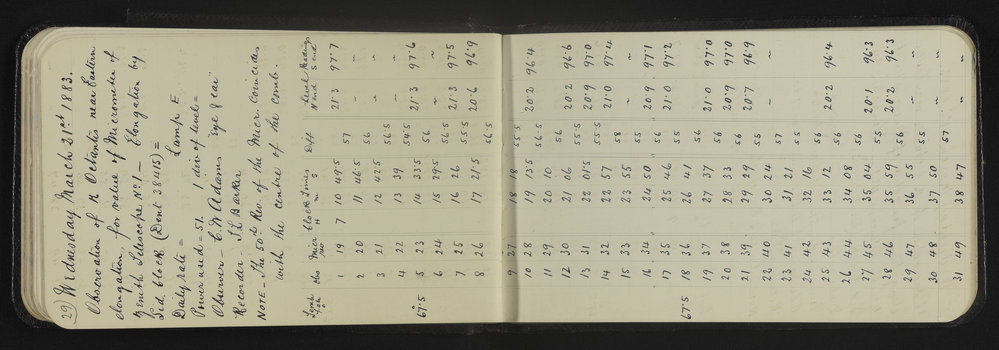 29) Wednesday March 21st 1883.
Observation of n Octantis near Eastern
elongation, for value of Micrometer of
Zenith Telescope No 1 — Elongation by
Sid. clock (Dent 38415) =
Daily rate = Lamp E
Power used = 51. 1 div of level =
Observer - C W Adams "eye & ear"
Recorder - J L Barker
NOTE - The 50th Rev. of the Micr. coincides
with the centre of the comb.
Temp Fah Obs Micr rev Clock Times H M S Diff Level Readings N end S end
1 19 7 10 49.5 57 21.3 97.7
2 20 11 46.5 56 - -
3 21 12 42.5 56.5 - -
4 22 13 39 54.5 - -
67.5 5 23 14 33.5 56 21.3 97.6
6 24 15 29.5 56.5 - -
7 25 16 26 55.5 21.3 97.5
8 26 17 21.5 56.5 20.6 96.9
9 27 18 18 55.5
10 28 19 13.5 56.5 20.2 96.4
11 29 20 10 56
12 30 21 06 55.5 20.2 96.6
13 31 22 01.5 55.5 20.9 97.0
14 32 22 57 58 21.0 97.4
15 33 23 55 55 - -
16 34 24 50 56 20.9 97.1
17 35 25 46 55 21.0 97.2
67.5 18 36 26 41 56
19 37 27 37 56 21.0 97.0
20 38 28 33 56 20.9 97.0
21 39 29 29 55 20.7 96.9
22 40 30 24 57 - -
23 41 31 21 55
24 42 32 16 56
25 43 33 12 56 20.2 96.4
26 44 34 08 56
27 45 35 04 55 20.1 96.3
28 46 35 59 56 20.2 96.3
29 47 36 55 55 - -
30 48 37 50 57
31 49 38 47 - -